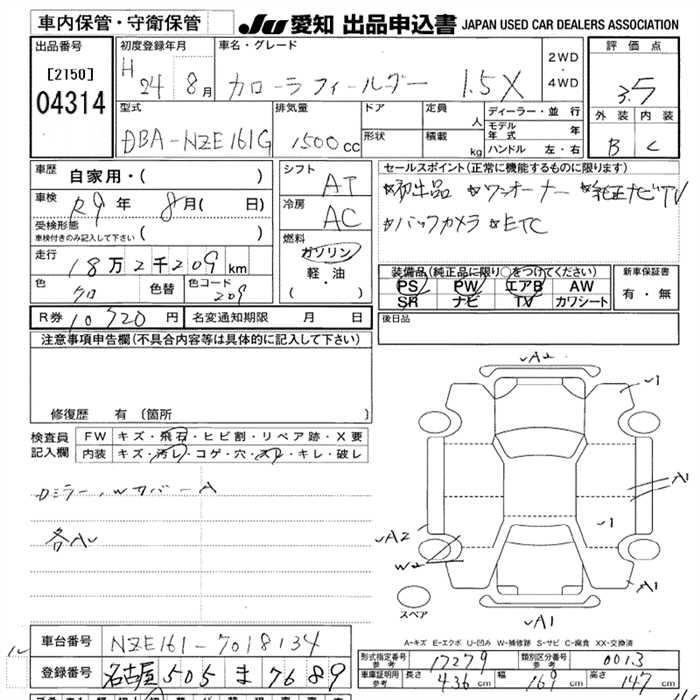 車内保管・守衛保管
JU 愛知 出品申込書 JAPAN USED CAR DEALERS ASSOCIATION
出品番号
[2150]
04314
初度登録年月
H 24 8月
車名・グレード
カローラフィールダー 1.5X
2WD
・
4WD
評価点
3.5
外装 内装
B C
型式
DBA-NZE161G
排気量
1500cc
ドア
形状
定員 人
積載 kg
ディーラー・並行
モデル年式 年
ハンドル 左・右
車歴 自家用・( )
車検 R9年 8月( 日)
受検形態
車検付きのみ記入して下さい ( )
走行
18万2千209km
色 クロ 色替 色コード 209
シフト AT
冷房 AC
燃料
ガソリン
軽・油
( ・ )
セールスポイント(正常に機能するものに限ります)
☆初出品 ☆ワンオーナー ☆純正ナビTV
☆バックカメラ ☆ETC
装備品(純正品に限り○をつけてください)
PS PW エアB AW
SR ナビ TV カワシート
新車保証書
有・無
R券 10720円 名変通知期限 月 日
後日品
注意事項申告欄(不具合内容等は具体的に記入して下さい)
修復歴 有 〔箇所 〕
検査員記入欄
FW キズ・飛石・ヒビ割・リペア跡・X要
内装 キズ・汚レ・コゲ・穴・スレ・キレ・破レ
ロミラー、Wカバー A
各A
A2
1
A1
1
A2
W2
A1
A1
スペア
A-キズ E-エクボ U-凹み W-補修跡 S-サビ C-腐食 XX-交換済
車台番号 NZE161-7018134
登録番号 名古屋 505 ま 7689
形式指定番号 参考 17279 類別区分番号 参考 0013
車庫証明用 参考 長さ 436cm 幅 169cm 高さ 147cm